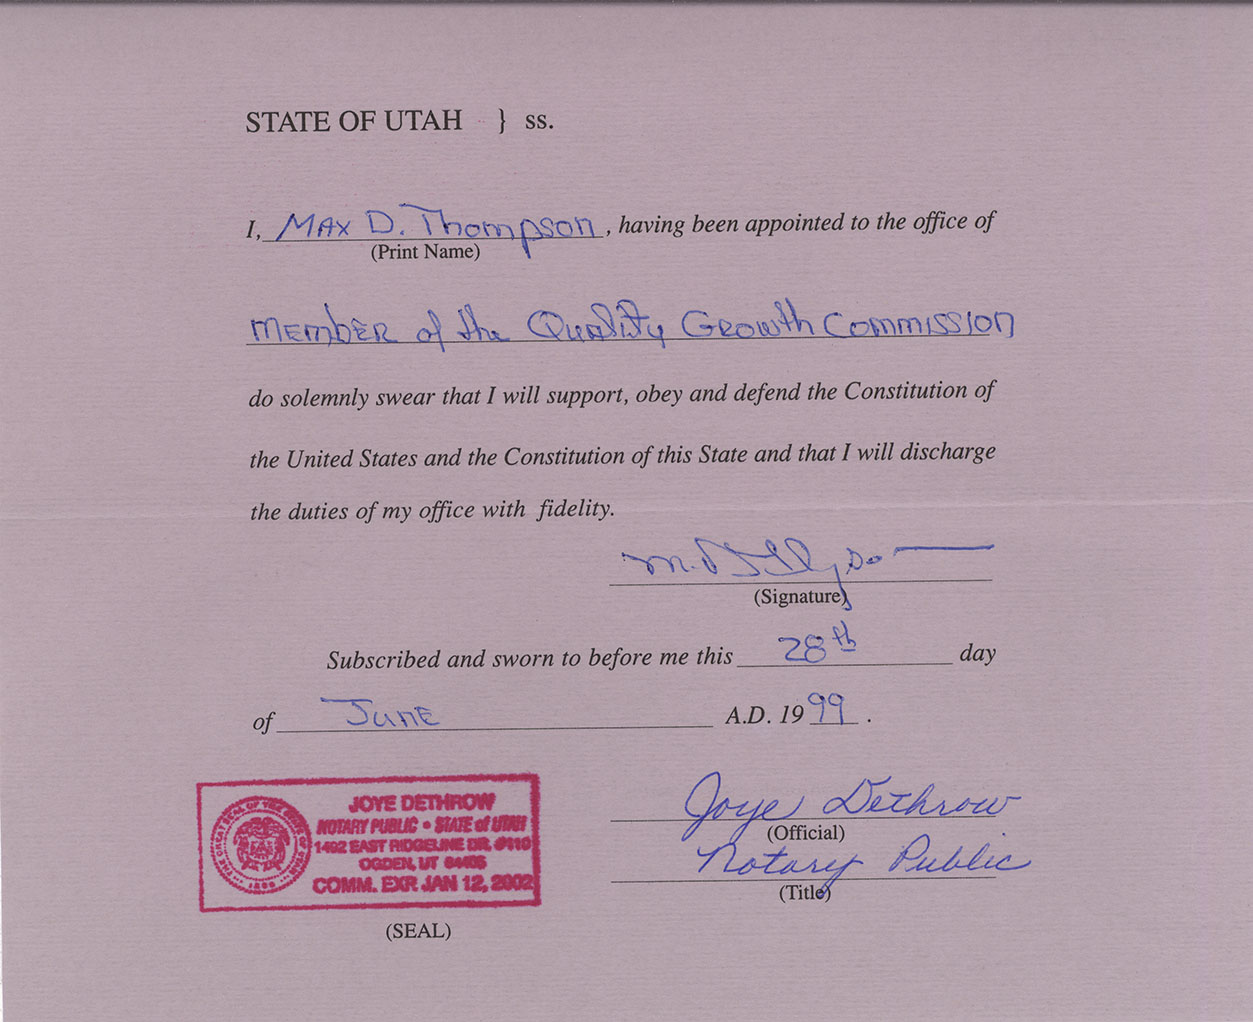 STATE OF UTAH } ss.
I, Max D. Thompson, having been appointed to the office of
(Print Name)
Member of the Quality Growth Commission
do solemnly swear that I will support, obey and defend the Constitution of
the United States and the Constitution of this State and that I will discharge
the duties of my office with fidelity.
(Signature)
Subscribed and sworn to before me this 28th day
of June A.D. 1999.
JOYE DETHROW
NOTARY PUBLIC • STATE of UTAH
1492 EAST RIDGELINE DR.
OGDEN, UT
COMM. EXP. JAN 12, 2002
(SEAL)
Joye Dethrow
(Official)
Notary Public
(Title)